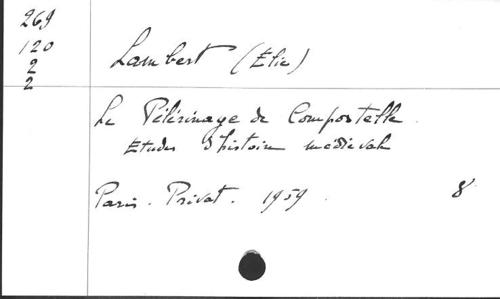 269
120
2
2
Lambert (Elie)
Le Pélérinage de Compostelle.
Etudes d'histoire médiévale
Paris. Privat. 1959. 8°